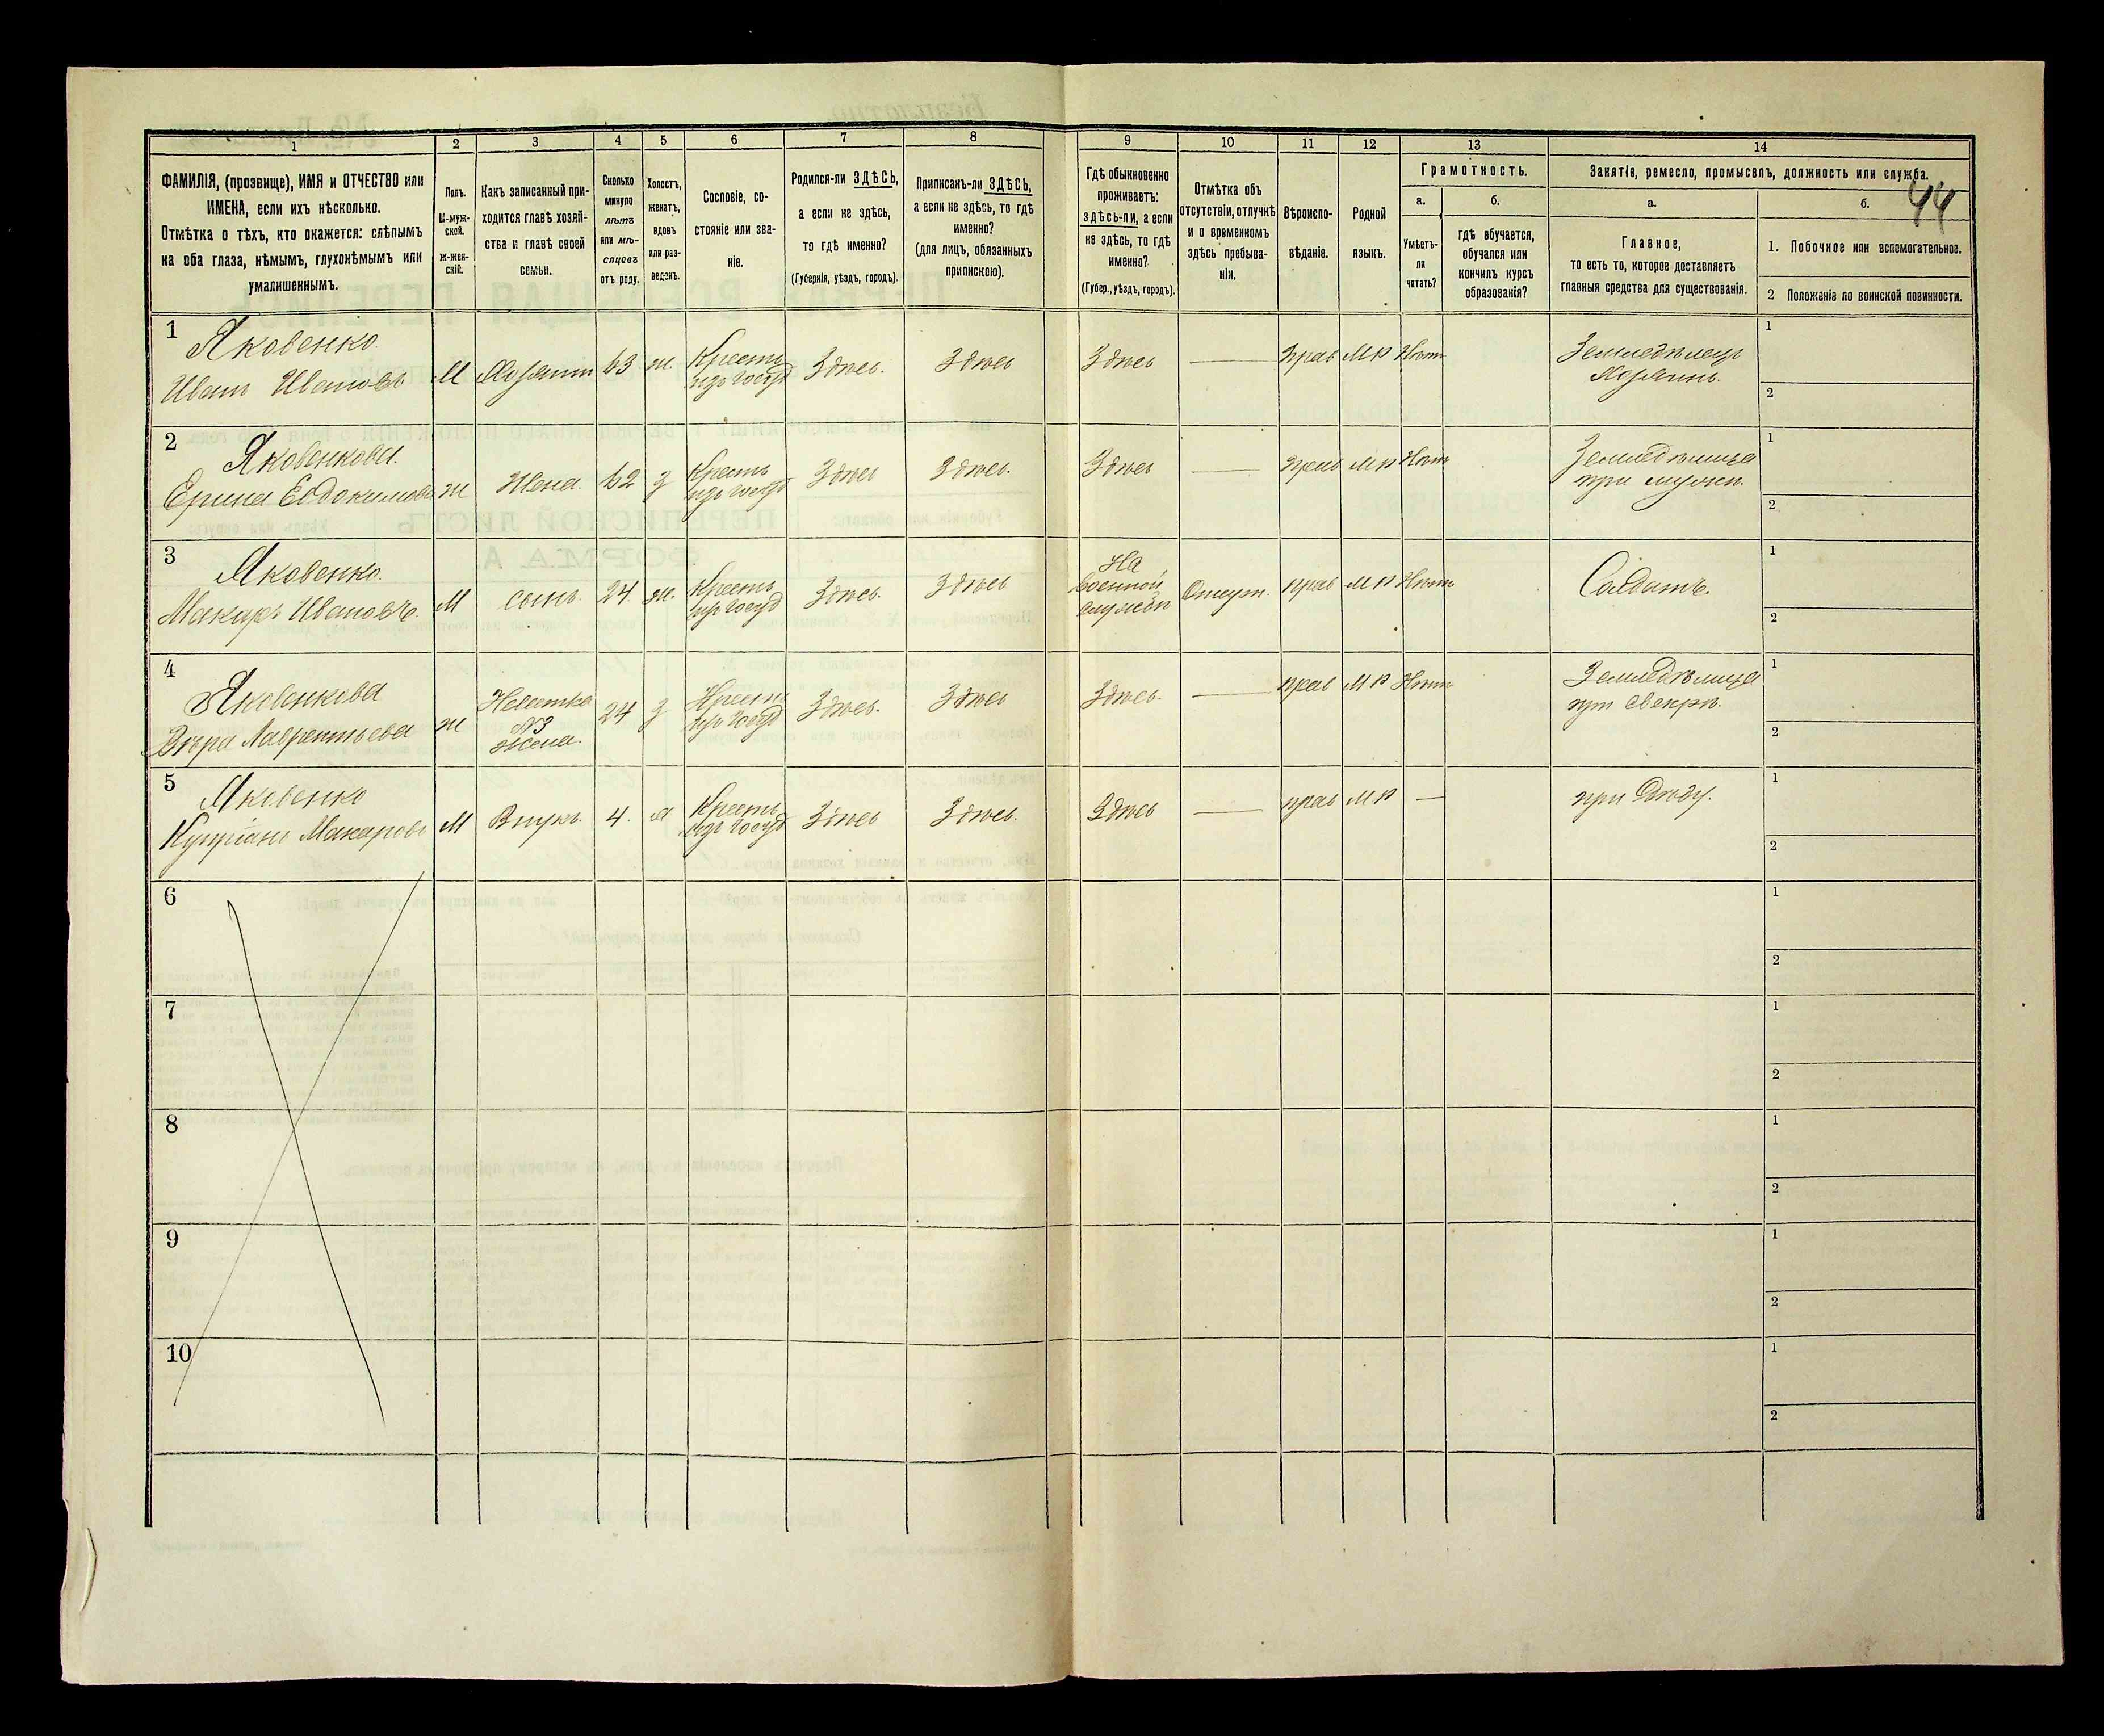 44
1 2 3 4 5 6 7 8 9 10 11 12 13 14
ФАМИЛІЯ, (прозвище), ИМЯ и ОТЧЕСТВО или
ИМЕНА, если ихъ нѣсколько.
Отмѣтка о тѣхъ, кто окажется: слѣпымъ
на оба глаза, нѣмымъ, глухонѣмымъ или
умалишеннымъ.
Полъ.
М-муж-
ской.
Ж-жен-
скій.
Какъ записанный при-
ходится главѣ хозяй-
ства и главѣ своей
семьи.
Сколько
минуло
лѣтъ
или мѣ-
сяцевъ
отъ роду.
Холостъ,
женатъ,
вдовъ
или раз-
веденъ.
Сословіе, со-
стояніе или зва-
ніе.
Родился-ли ЗДѢСЬ,
а если не здѣсь,
то гдѣ именно?
(Губернія, уѣздъ, городъ).
Приписанъ-ли ЗДѢСЬ,
а если не здѣсь, то гдѣ
именно?
(для лицъ, обязанныхъ
припискою).
Гдѣ обыкновенно
проживаетъ:
здѣсь-ли, а если
не здѣсь, то гдѣ
именно?
(Губер., уѣздъ, городъ).
Отмѣтка объ
отсутствіи, отлучкѣ
и о временномъ
здѣсь пребыва-
ніи.
Вѣроиспо-
вѣданіе.
Родной
языкъ.
Грамотность.
а.
Умѣетъ-
ли
читать?
б.
гдѣ обучается,
обучался или
кончилъ курсъ
образованія?
Занятіе, ремесло, промыселъ, должность или служба.
а.
Главное,
то есть то, которое доставляетъ
главныя средства для существованія.
б.
1. Побочное или вспомогательное.
2 Положеніе по воинской повинности.
1
Яковенко
Иванъ Ивановъ М Хозяинъ 63 ж. Кресть изъ госуд Здѣсь. Здѣсь Здѣсь — прав М Р Нѣтъ
Земледѣлецъ
Хозяинъ.
1
2
2
Яковенкова.
Ерина Евдокимова ж Жена. 62 з Кресть изъ госуд Здѣсь Здѣсь. Здѣсь — прав М Р Нѣтъ
Земледѣлица
при мужѣ.
1
2
3
Яковенко.
Макаръ Ивановъ. М сынъ. 24 ж. Кресть изъ госуд Здѣсь. Здѣсь
На
военной
службѣ
Отсут. прав М Р Нѣтъ
Солдатъ.
1
2
4
Яковенкова
Вѣра Лаврентьева ж
Невѣстка
№3
жена.
24 з Кресть изъ госуд Здѣсь. Здѣсь Здѣсь. — прав М Р Нѣтъ
Земледѣлица
при свекрѣ.
1
2
5
Яковенко
Купріанъ Макаровъ М Внукъ 4. х Кресть изъ госуд Здѣсь Здѣсь. Здѣсь — прав М Р —
при дѣду.
1
2
6
1
2
7
1
2
8
1
2
9
1
2
10
1
2